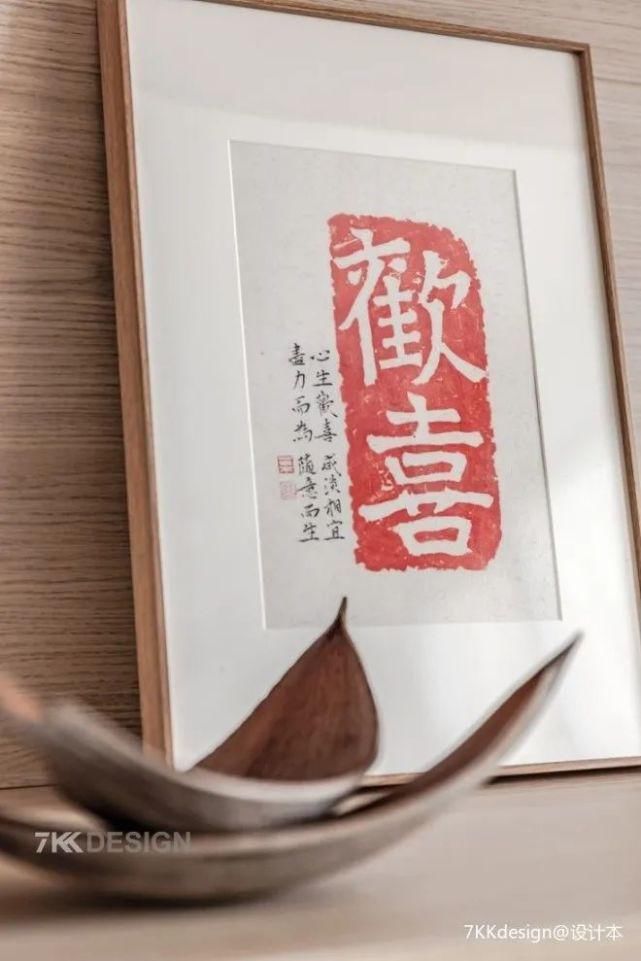 歡喜
心生歡喜 咸淡相宜
盡力而為 隨意而生
7KK DESIGN
7KKdesign@设计本